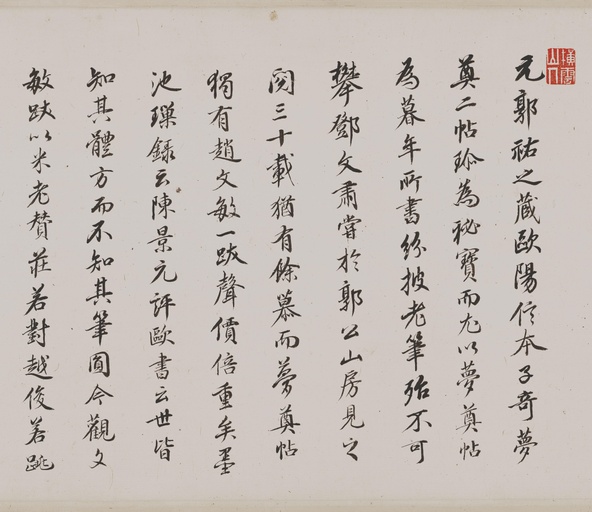 元郭祐之藏歐陽信本子奇夢
奠二帖珍為秘寶而尤以夢奠帖
為暮年所書紛披老筆殆不可
攀鄧文肅嘗於郭公山房見之
閱三十載猶有餘慕而夢奠帖
獨有趙文敏一跋聲價倍重矣墨
池璅錄云陳景元評歐書云世皆
知其體方而不知其筆圓今觀文
敏跋以米老贊莊若對越俊若跳